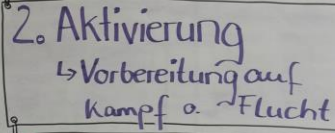 2. Aktivierung
↳ Vorbereitung auf
Kampf o. Flucht